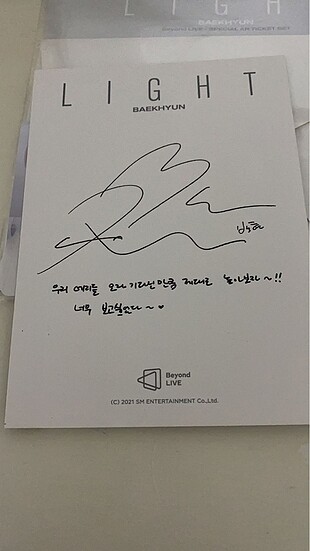 L I G H T
BAEKHYUN
Beyond LIVE
L I G H T
BAEKHYUN
백현
우리 에리들 오래 기다린만큼 제대로 놀아보자~!!
너무 보고싶었다~♥
Beyond
LIVE
(C) 2021 SM ENTERTAINMENT Co.,Ltd.